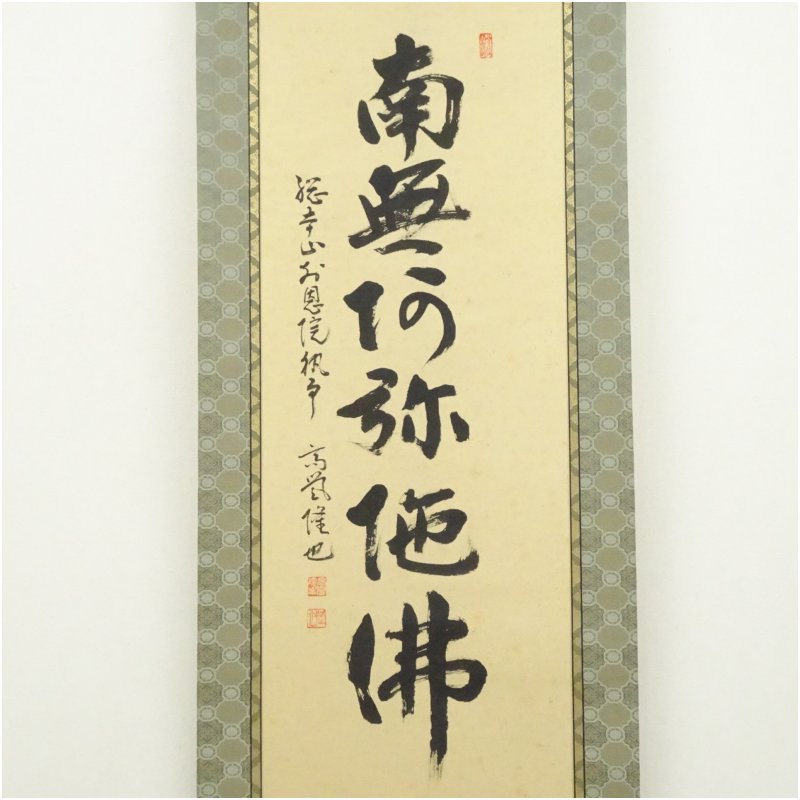 南無阿弥陀佛
総本山知恩院執事 高誉隆也